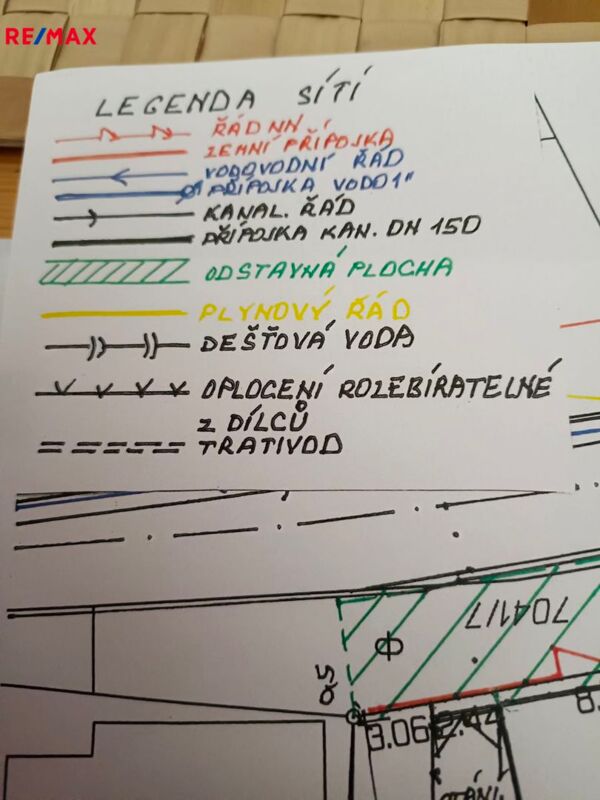 RE/MAX
LEGENDA SÍTÍ
ŘÁD NN
ZEMNÍ PŘÍPOJKA
VODOVODNÍ ŘÁD
PŘÍPOJKA VODO 1"
KANAL. ŘÁD
PŘÍPOJKA KAN. DN 150
ODSTAVNÁ PLOCHA
PLYNOVÝ ŘÁD
DEŠŤOVÁ VODA
OPLOCENÍ ROZEBÍRATELNÉ
Z DÍLCŮ
TRATIVOD
7041/7
3.06